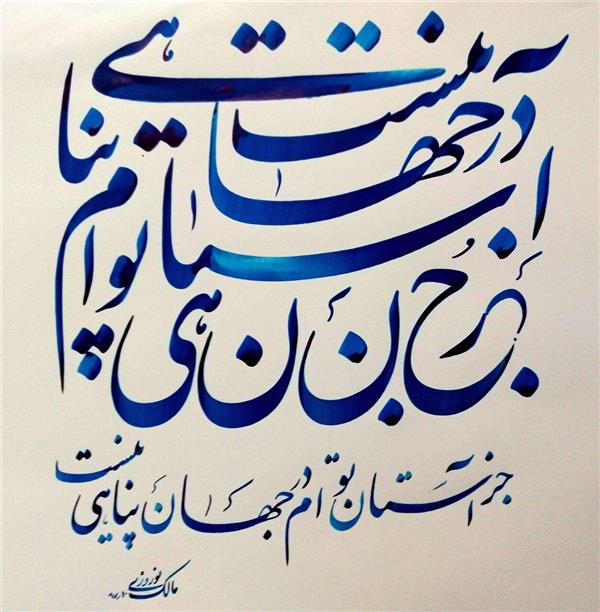 جز آستان توام در جهان پناهی نیست
جز آستان توام در جهان پناهی نیست
مالک نوروزی